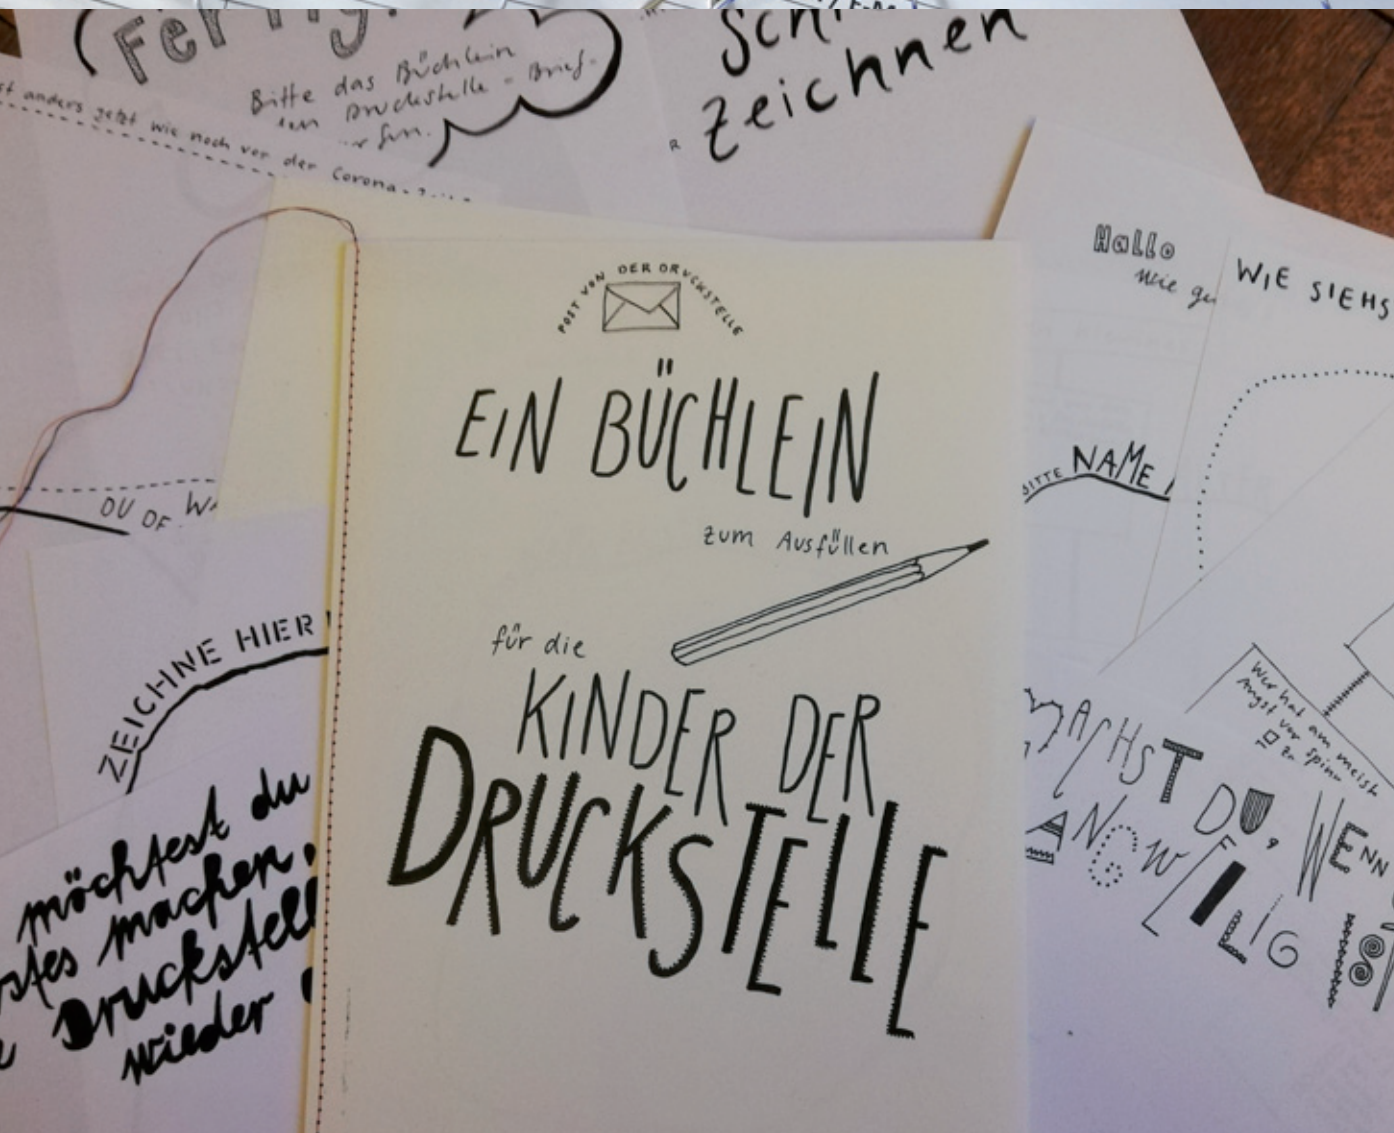 Fertig!
Bitte das Büchlein
Druckstelle - Brief-
zeichnen
anders jetzt wie noch vor der Corona-
POST VON DER DRUCKSTELLE
EIN BÜCHLEIN
zum Ausfüllen
für die
KINDER DER
DRUCKSTELLE
Hallo
wie
WIE SIEHS
BITTE NAME
DU
ZEICHNE HIER
möchtest du
machen,
Druckstell
wieder
Wer hat am meist
Angst vor Spinn
MACHST DU, WENN
LANGWEILIG IST